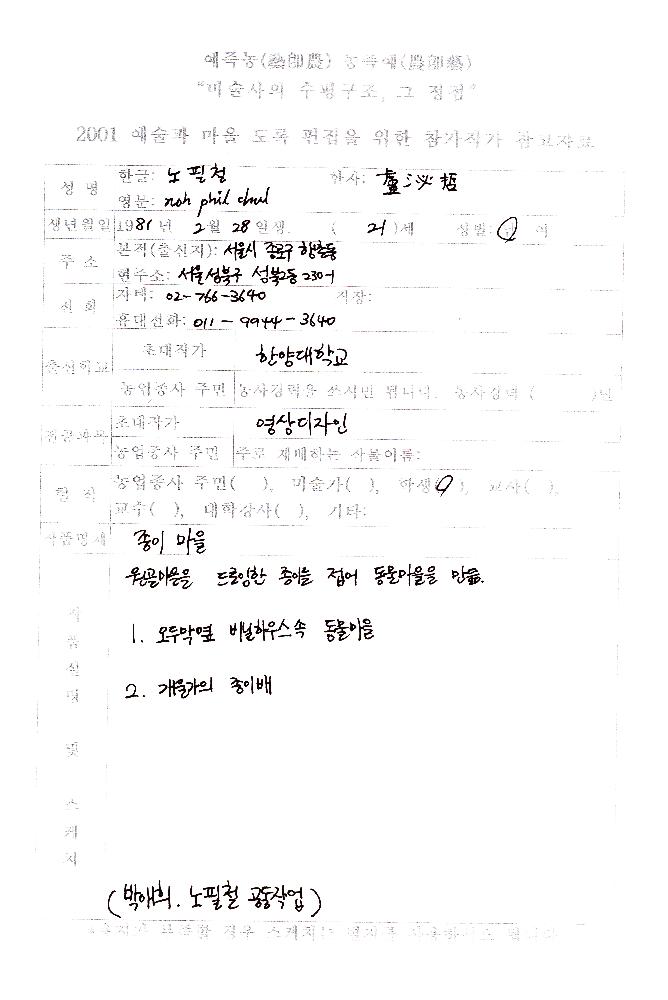 예즉농(藝卽農) 농즉예(農卽藝)
"미술사의 수평구조, 그 정점"
2001 예술과 마을 도록 편집을 위한 참가작가 참고자료
성 명 한글: 노필철 한자: 盧泌哲
영문: noh phil chul
생년월일 1981 년 2월 28 일생. ( 21 )세 성별: 남 여
주 소 본적(출신지): 서울시 종로구
현주소: 서울 성북구 성북2동 230-1
자택: 02-766-3640 직장:
휴대전화: 011-9944-3640
출신학교 초대작가 한양대학교
농업종사 주민 농사경력을 쓰시면 됩니다. 농사경력 ( )년
전공과목 초대작가 영상디자인
농업종사 주민 주로 재배하는 작물이름:
현 직 농업종사 주민( ), 미술가( ), 학생( ), 교사( ),
교수( ), 대학강사( ), 기타:
작품명제 종이 마을
원골마을을 드로잉한 종이를 접어 동물마을을 만듦.
1. 오두막옆 비닐하우스속 동물마을
2. 개울가의 종이배
작품설명 및 스케치
(박애희. 노필철 공동작업)